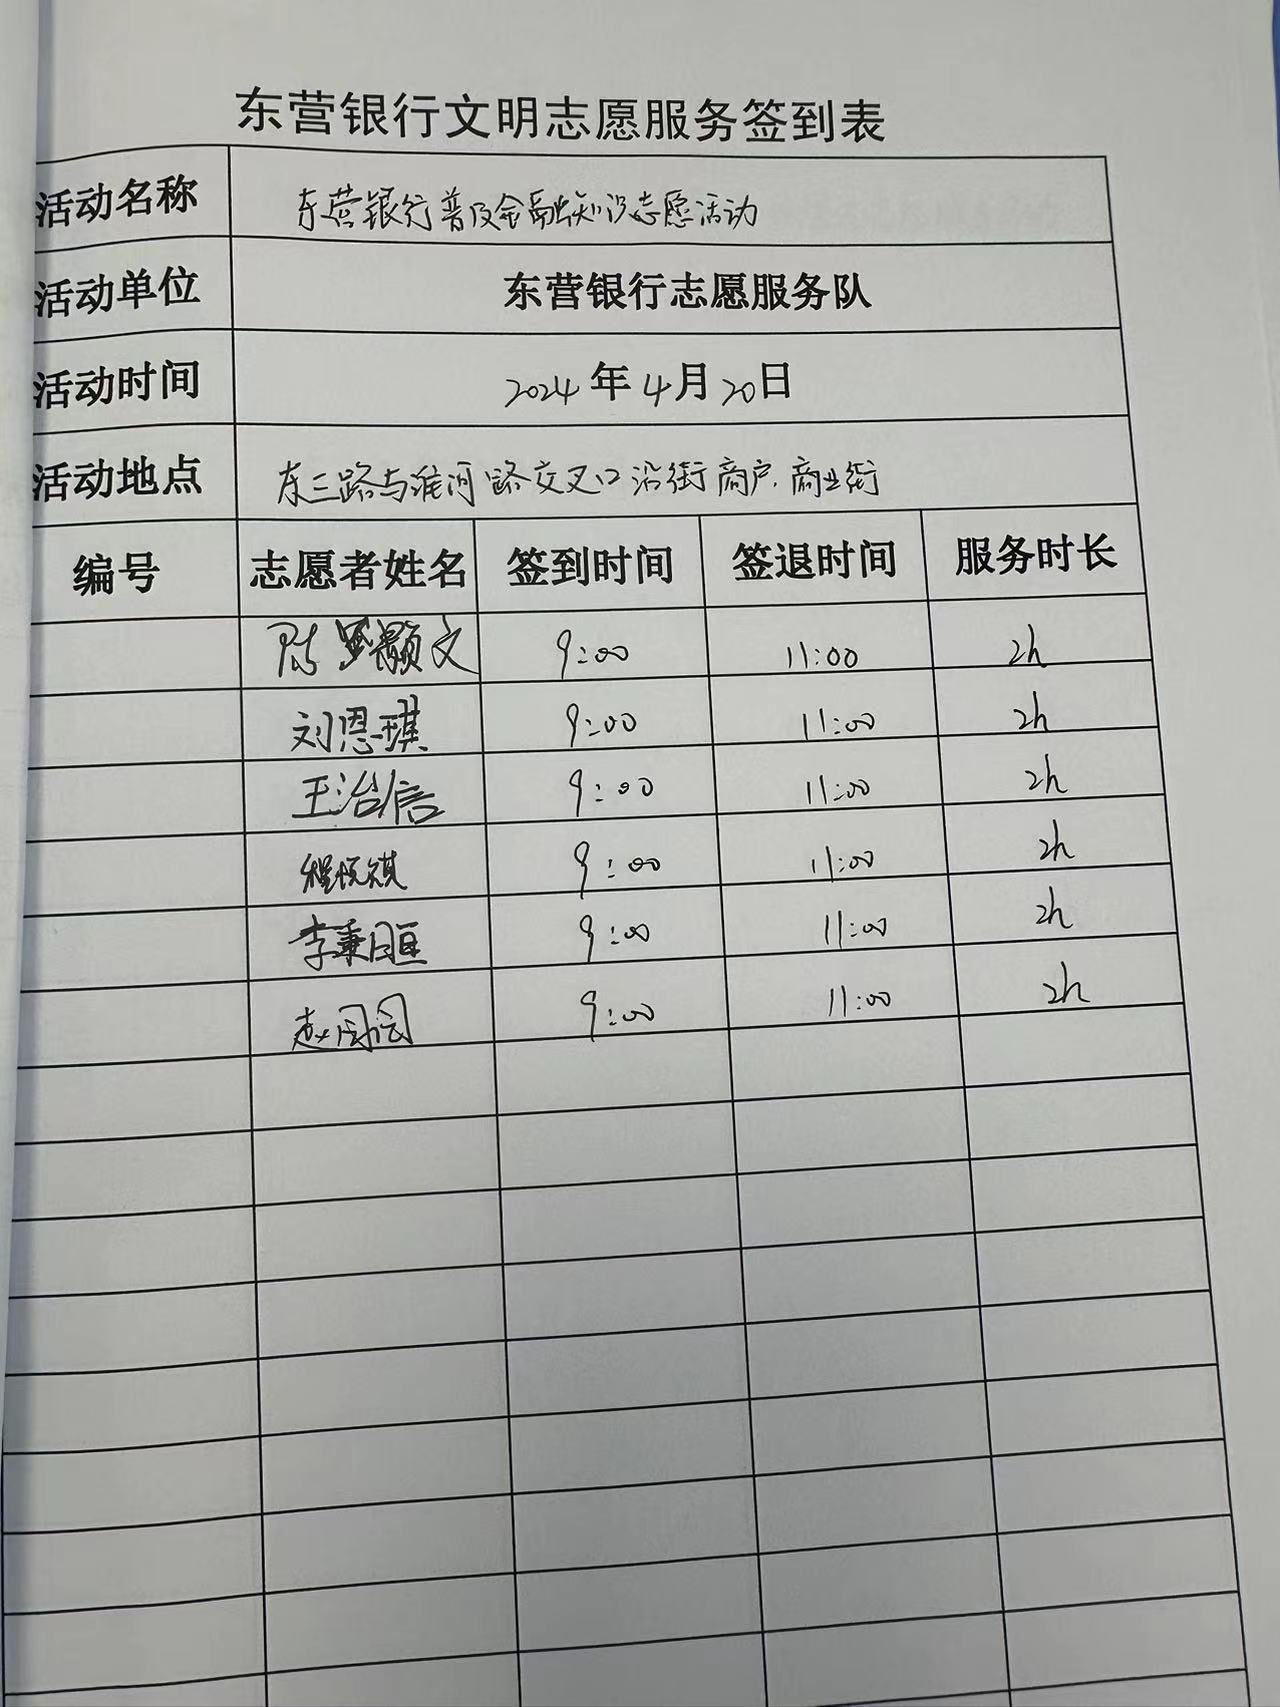 东营银行文明志愿服务签到表
活动名称 东营银行普及金融知识志愿活动
活动单位 东营银行志愿服务队
活动时间 2024年4月20日
活动地点 东三路与淮河路交叉口沿街商户、商业街
编号 志愿者姓名 签到时间 签退时间 服务时长
陈 颢文 9:00 11:00 2h
刘恩琪 9:00 11:00 2h
王治信 9:00 11:00 2h
程悦祺 9:00 11:00 2h
李秉晅 9:00 11:00 2h
赵 9:00 11:00 2h